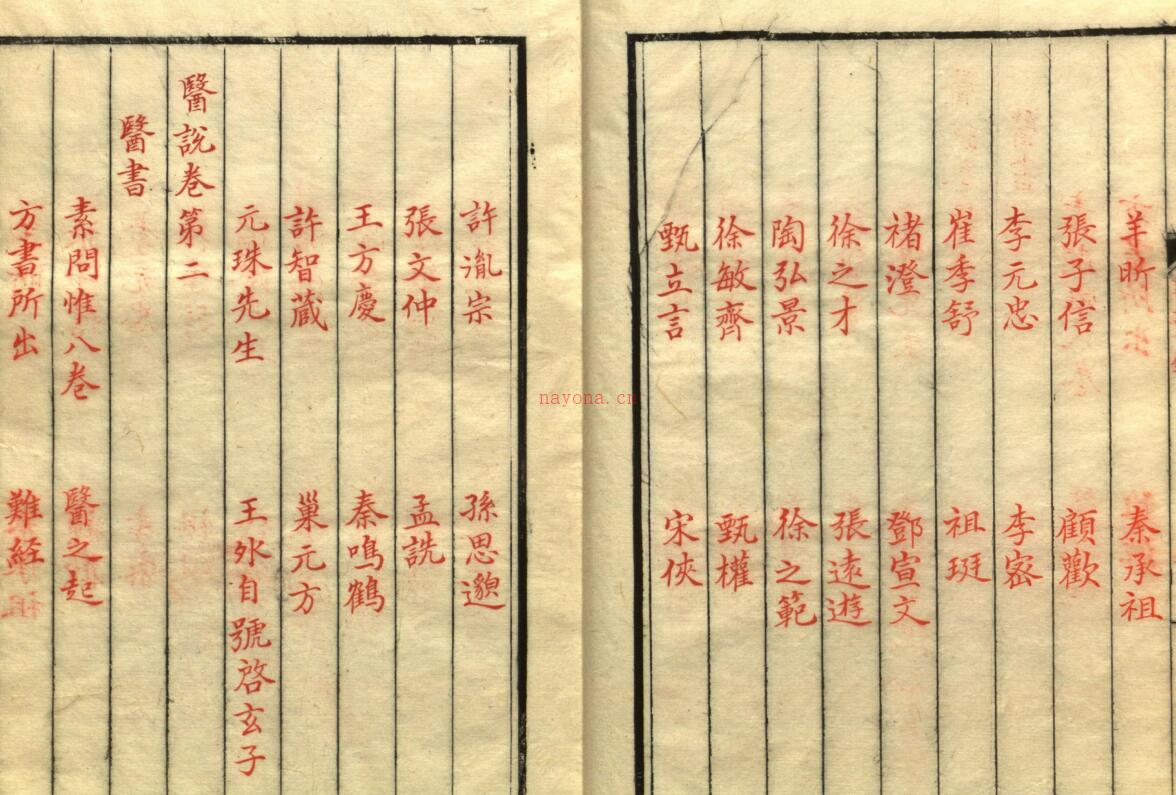 羊昕 秦承祖
張子信 顧歡
李元忠 李密
崔季舒 祖珽
禇澄 鄧宣文
徐之才 張遠遊
陶弘景 徐之範
徐敏齊 甄權
甄立言 宋俠
許胤宗 孫思邈
張文仲 孟詵
王方慶 秦鳴鶴
許智藏 巢元方
元珠先生 王氷自號啓玄子
醫說卷第二
醫書
素問惟八卷 醫之起
方書所出 難経
nayona.cn